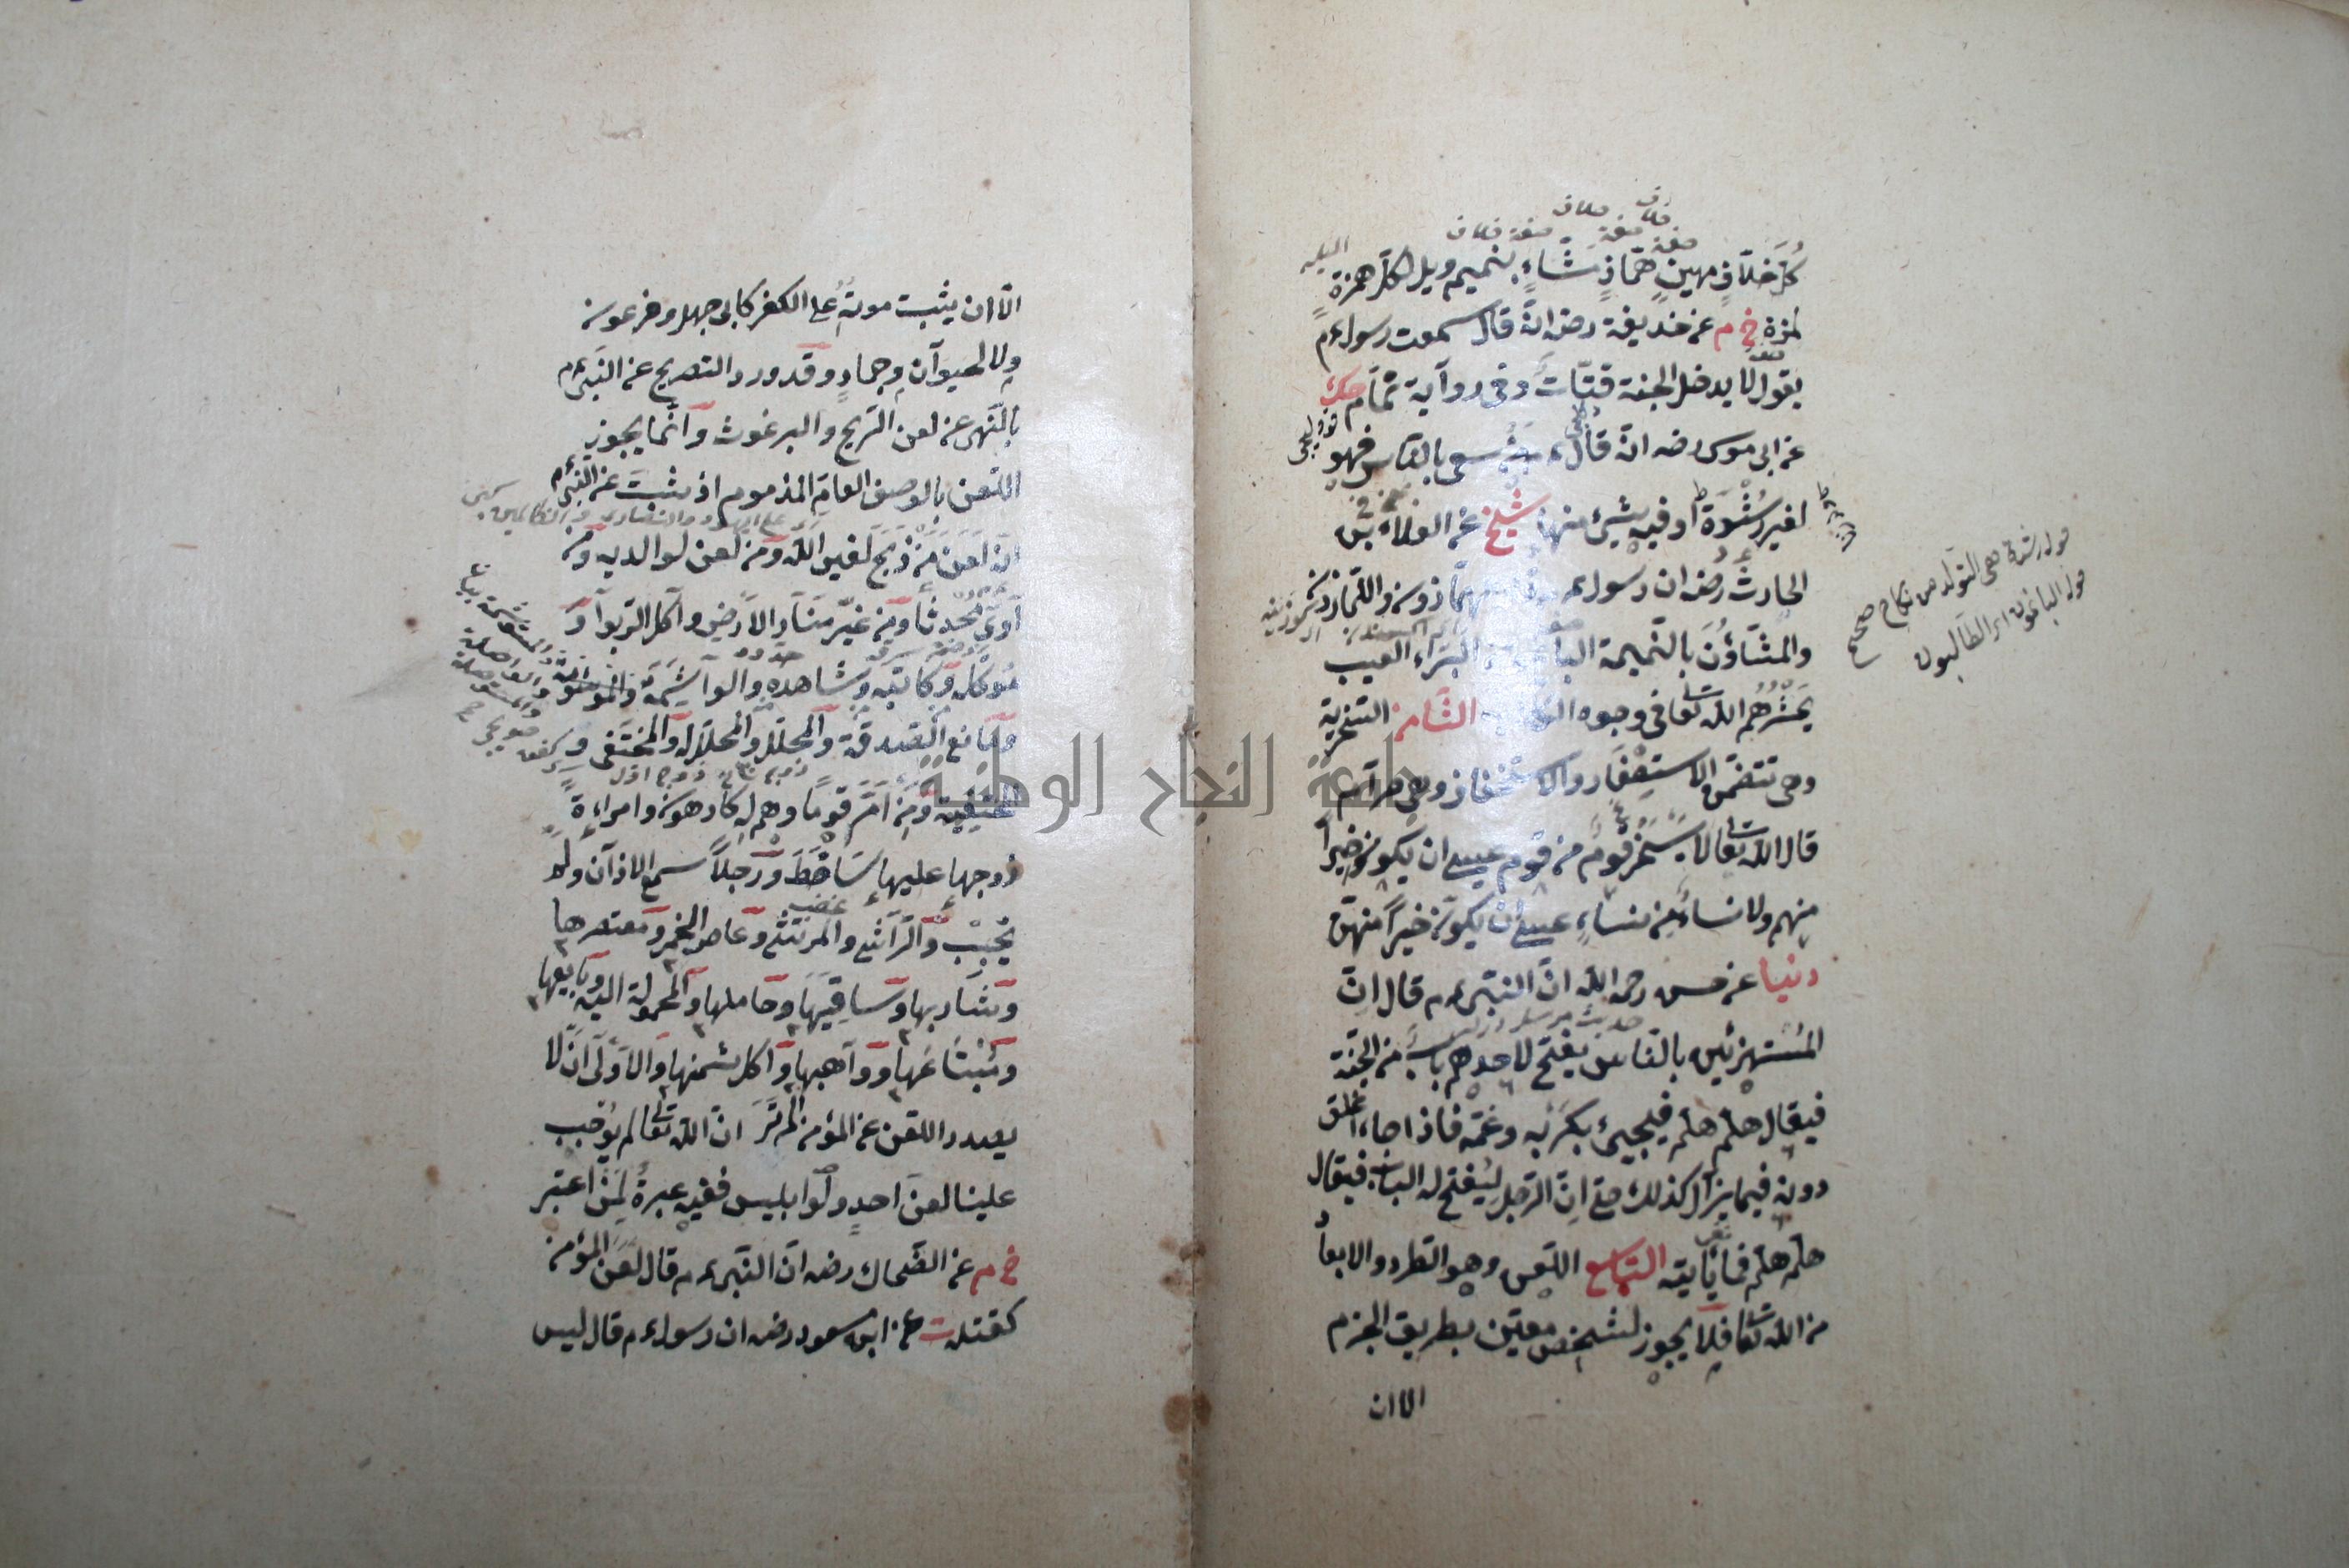 كل حلاف مهين هماز مشاء بنميم ويل لكل همزة
لمزة خ م عن حذيفة رضه انه قال سمعت رسول ءم
يقول لا يدخل الجنة قتات وفى رواية نمام حك
عن ابى موسى رضه انه قال من سعى بالناس فهو
لغير رشدة او فيه شئ منها شيخ عن العلاء بن
الحارث رضه ان رسول ءم قال الهمازون واللمازون
والمشاؤن بالنميمة الباغون البراء العيب
يحشرهم الله تعا فى وجوه الكلاب الثامن السخرية
وهى تتضمن الاستصغار والاستخفاف وهى حرام
قال الله تعا لا يسخر قوم من قوم عسى ان يكونوا خيرا
منهم ولا نساء من نساء عسى ان يكون خيرا منهن
دنيا عن حسن رحمه الله ان النبى ءم قال ان
حديث مرسل
المستهزئين بالناس يفتح لاحدهم باب من الجنة
فيقال هلم هلم فيجيئ بكربه وغمه فاذا جاء اغلق
دونه فيما يزال كذلك حتى ان الرجل ليفتح له الباب فيقال
هلم هلم فما يأتيه التاسع اللعن وهو الطرد والابعاد
من الله تعا فلا يجوز لشخص معين بطريق الجزم
الا ان
قوله رشدة هى التولد من نكاح صحيح
قوله الباغون اى الطالبون
الا ان يثبت موته على الكفر كابى جهل وفرعون
ولا لحيوان وجماد وقد ورد التصريح عن النبى ءم
بالنهى عن لعن الريح والبرغوث وانما يجوز
اللعن بالوصف العام المذموم اذ يثبت عن النبى ءم
انه لعن من ذبح لغير الله ومن لعن لوالديه ومن
آوى محدثا ومن غير منار الارض وآكل الربوا و
موكله وكاتبه وشاهده والواشمة والموشومة
ومانع الصدقة والمحلل والمحلل له والمختفى و
المختفية ومن ام قوما وهم له كارهون وامراءة
زوجها عليها ساخط ورجلا سمع الاذان ولم
يجب والراشى والمرتشى وعاصر الخمر ومعتصرها
وشاربها وساقيها وحاملها والمحمولة اليه وبايعها
ومبتاعها وواهبها وآكل ثمنها والاولى ان لا
يعدد اللعن عن المؤمن الم تر ان الله تعا لم يوجب
علينا لعن احد ولو ابليس ففيه عبرة لمن اعتبر
خ م عن الضحاك رضه ان النبى ءم قال لعن المؤمن
كقتله ت عن ابن مسعود رضه ان رسول ءم قال ليس
جامعة النجاح الوطنية